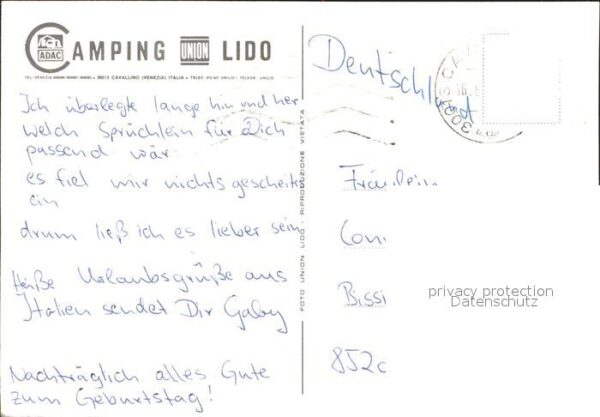 CAMPING UNION LIDO
ACI
ADAC
30013 CAVALLINO (VENEZIA) ITALIA
Ich überlegte lange hin und her
welch Sprüchlein für Dich
passend wär
es fiel mir nichts gescheites
ein
drum ließ ich es lieber sein
Heiße Urlaubsgrüße aus
Italien sendet Dir Gaby
Nachträglich alles Gute
zum Geburtstag!
FOTO UNION LIDO - RIPRODUZIONE VIETATA
Deutschland
Fräulein
Coni
Bissi
852c
privacy protection
Datenschutz